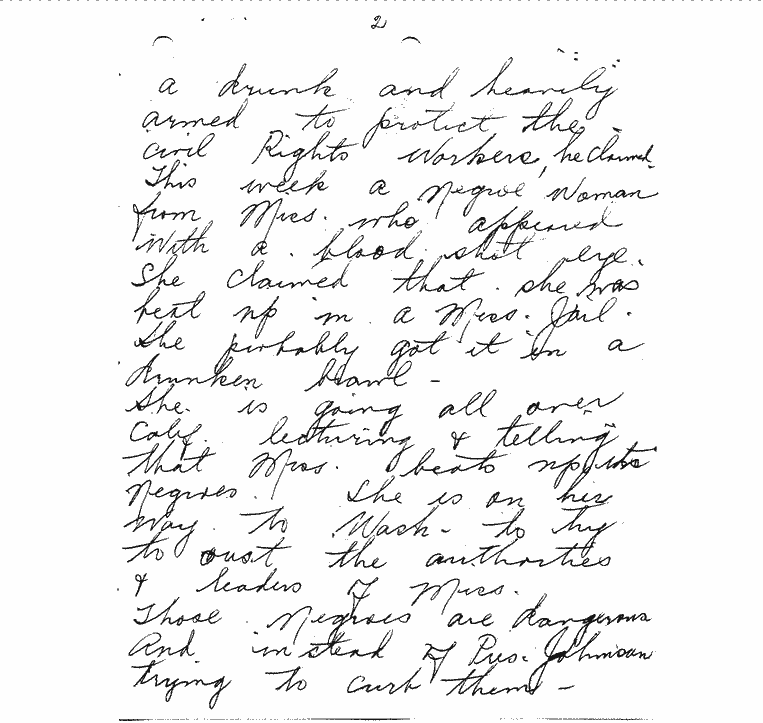 2
a drunk and heavily
armed to protect the
civil Rights Workers, he claimed.
This week a Negroe Woman
from Miss. who appeared
With a blood shot eye.
She claimed that she was
beat up in a Miss. Jail.
She probably got it in a
drunken brawl -
She is going all over
Calif. lecturing & telling
that Miss. beats up its
Negroes. She is on her
way to Wash. to try
to oust the authorties
& leaders of Miss.
Those Negroes are dangerous
And instead of Pres. Johnson
trying to curb them -